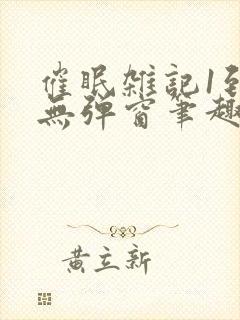 催眠雜記1到
無彈窗筆趣
黃立新